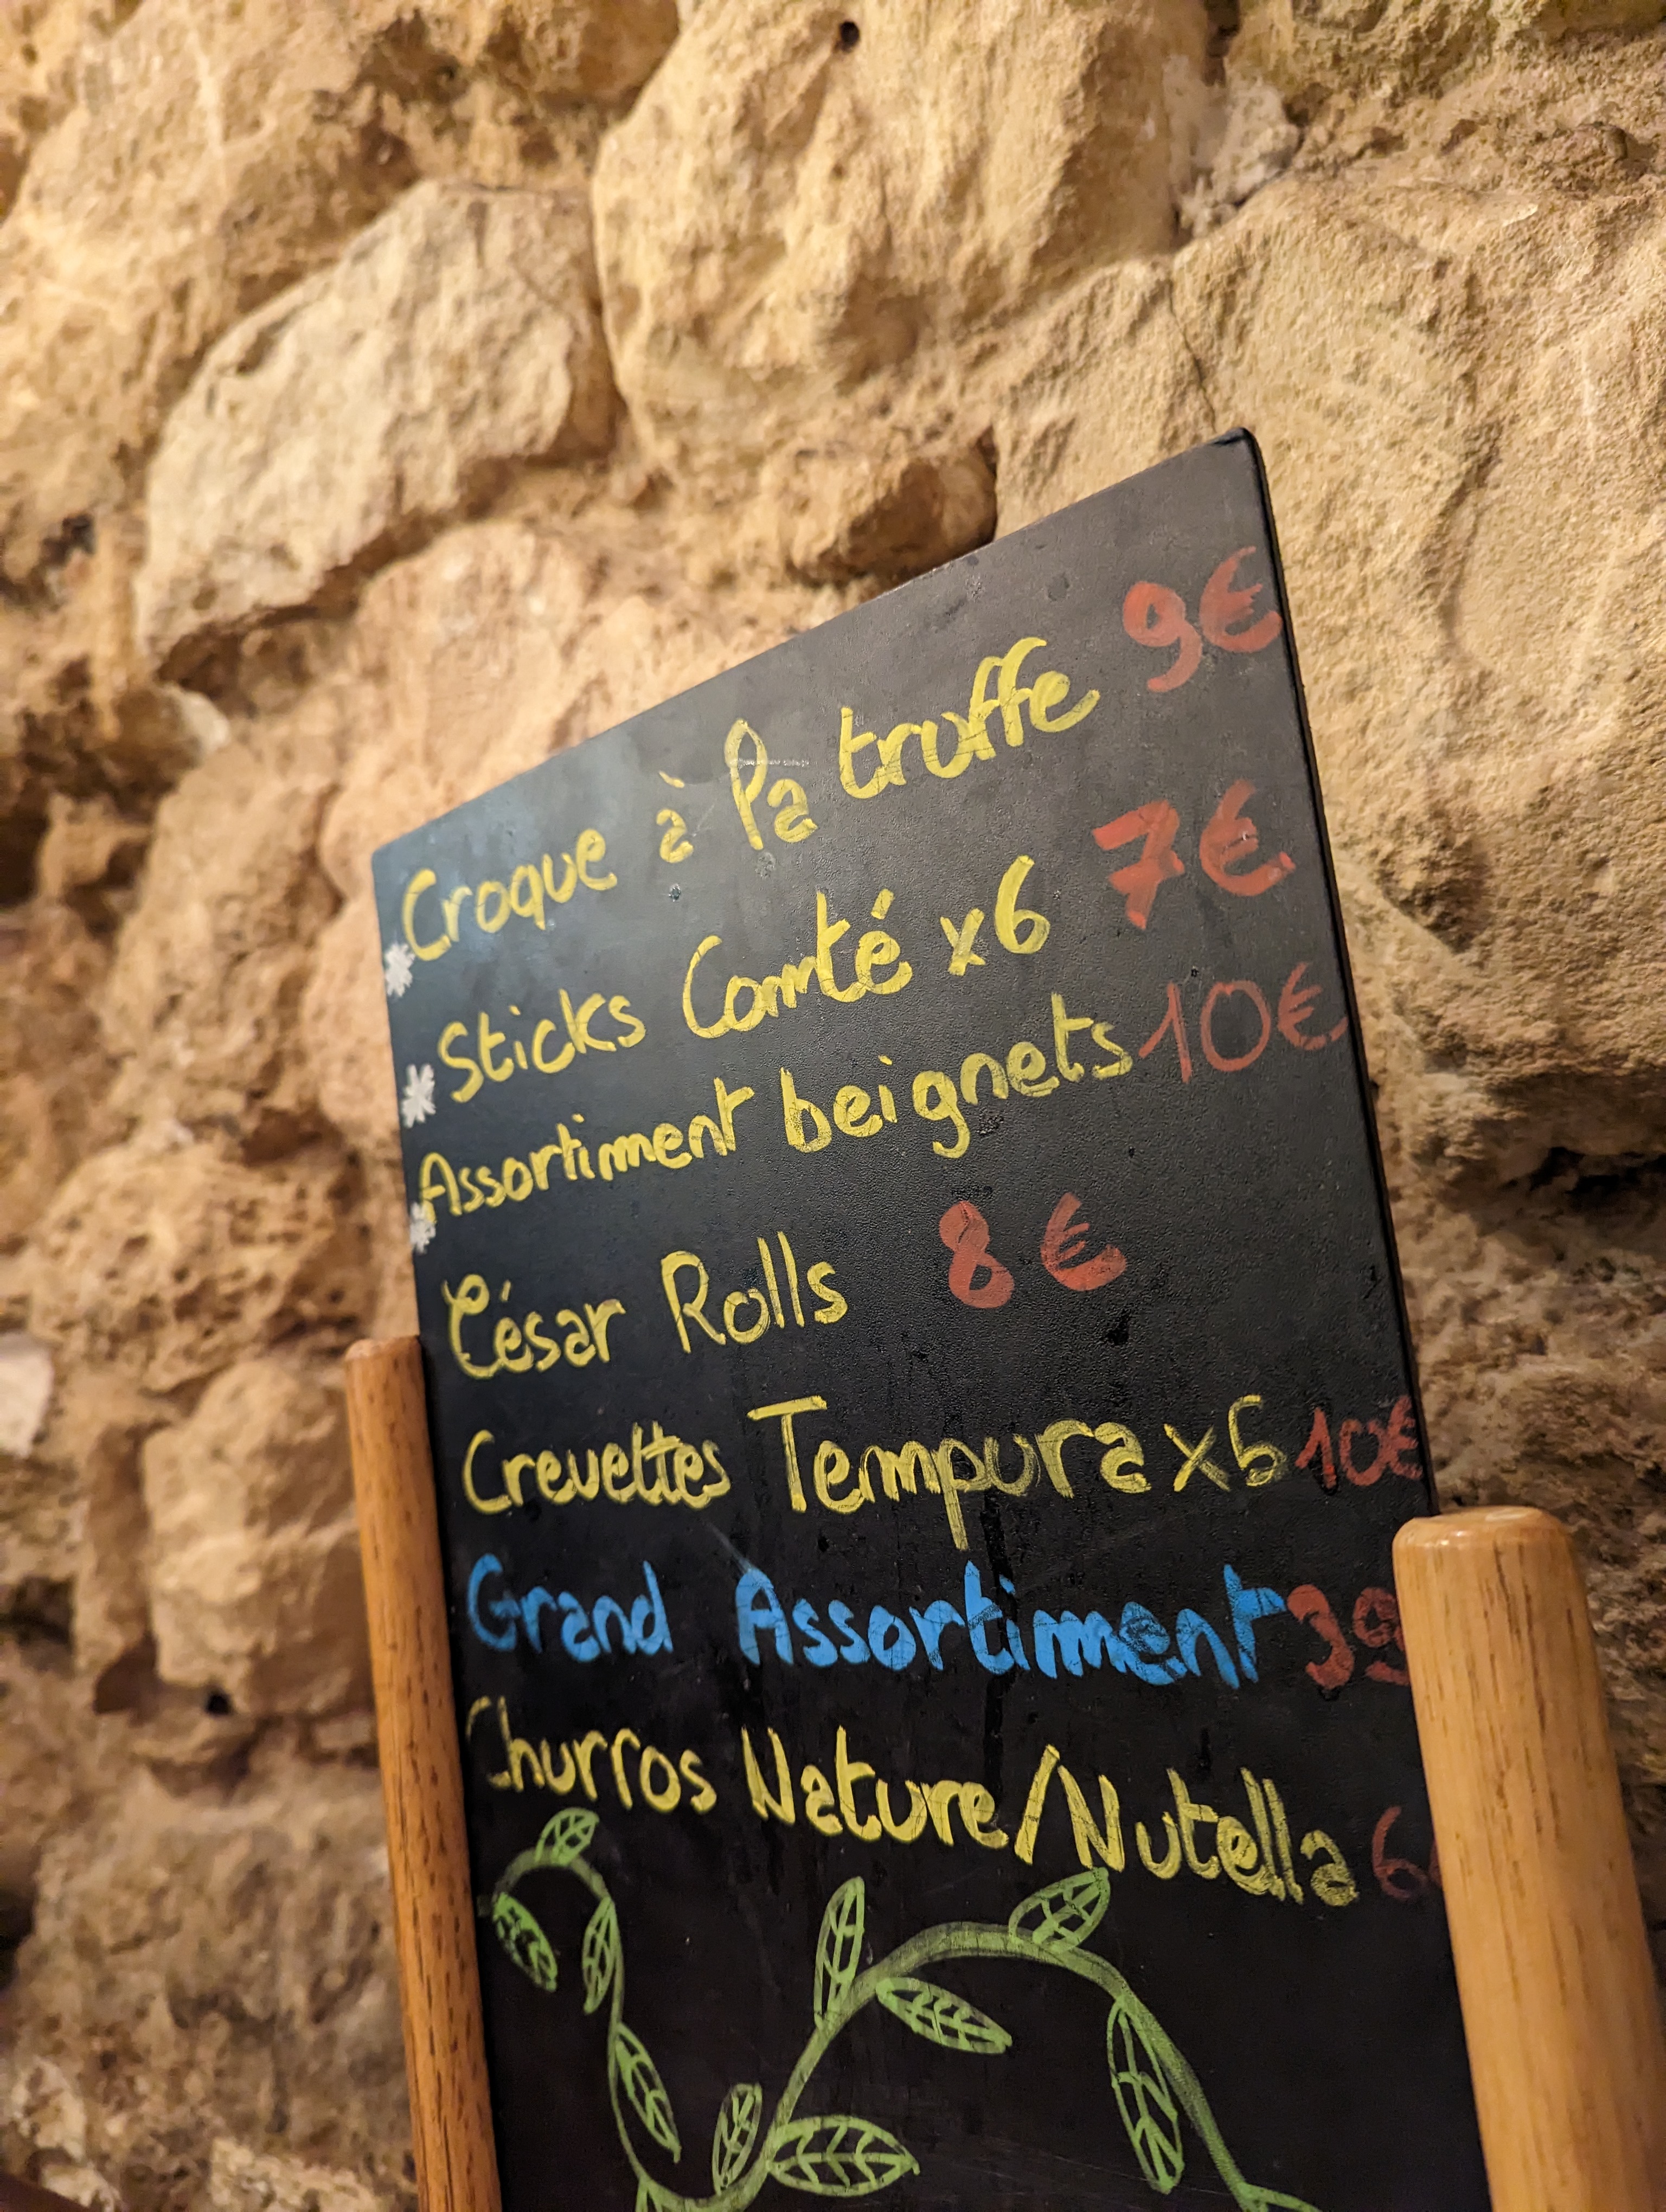 Croque à la truffe 9€
Sticks Comté x6 7€
Assortiment beignets 10€
César Rolls 8€
Crevettes Tempura x6 10€
Grand Assortiment
Churros Nature/Nutella